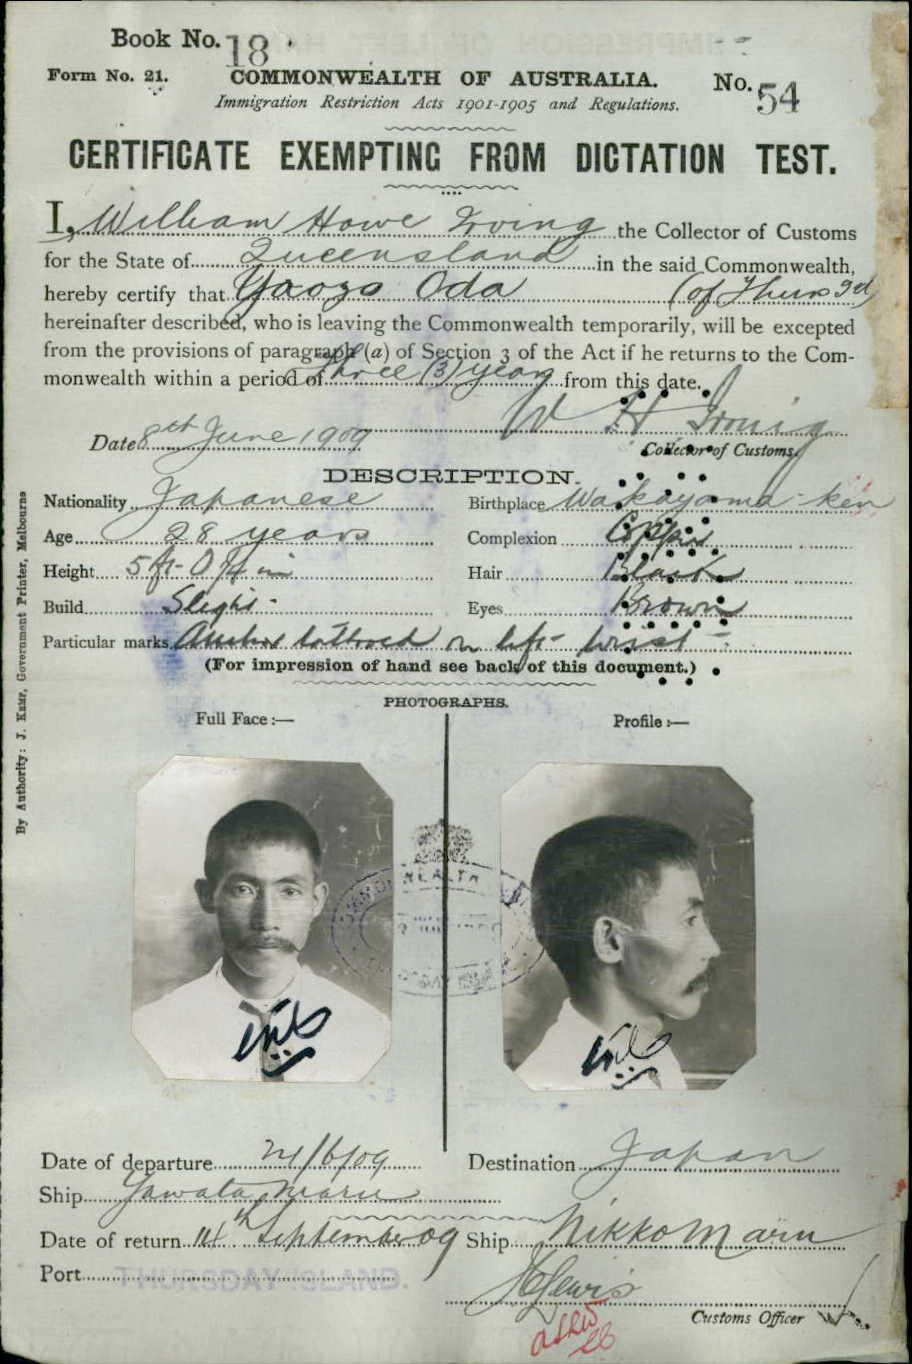 Book No. 18
Form No. 21. COMMONWEALTH OF AUSTRALIA. No. 54
Immigration Restriction Acts 1901-1905 and Regulations.
CERTIFICATE EXEMPTING FROM DICTATION TEST.
I, William Howe Irving the Collector of Customs
for the State of Queensland in the said Commonwealth,
hereby certify that Yaozo Oda (of Thurs Id)
hereinafter described, who is leaving the Commonwealth temporarily, will be excepted
from the provisions of paragraph (a) of Section 3 of the Act if he returns to the Com-
monwealth within a period of three (3) years from this date.
W H Irving
Date 8th June 1909 Collector of Customs.
DESCRIPTION.
Nationality Japanese Birthplace Wakayama-ken
Age 28 years Complexion Copper
Height 5 ft- 0¾ in Hair Black
Build Slight. Eyes Brown
Particular marks Anchor tattooed on left wrist
(For impression of hand see back of this document.)
PHOTOGRAPHS.
Full Face:— Profile:—
By Authority: J. Kemp, Government Printer, Melbourne
Date of departure 24/6/09 Destination Japan
Ship Yawata Maru
Date of return 14th September 09 Ship Nikko Maru
Port THURSDAY ISLAND.
Customs Officer